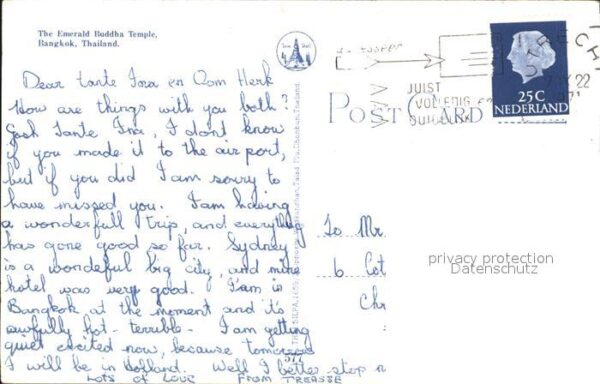 The Emerald Buddha Temple,
Bangkok, Thailand.
Dear tante Ina en Oom Henk
How are things with you both?
Gosh Tante Ina, I don't know
if you made it to the air port,
but if you did I am sorry to
have missed you. I am having
a wonderfull trip, and everything
has gone good so far. Sydney
is a wondeful big city, and mine
hotel was very good. I'am in
Bangkok at the moment and it's
awfully hot - terrible - I am getting
quiet excited now, because tomorrow
I will be in Holland. Well I better stop n
LOTS OF LOVE FROM
POST CARD
JUIST
VOLLEDIG
UTRECH
22
25C
NEDERLAND
To Mr.
6. Cot
Chr
577
privacy protection
Datenschutz